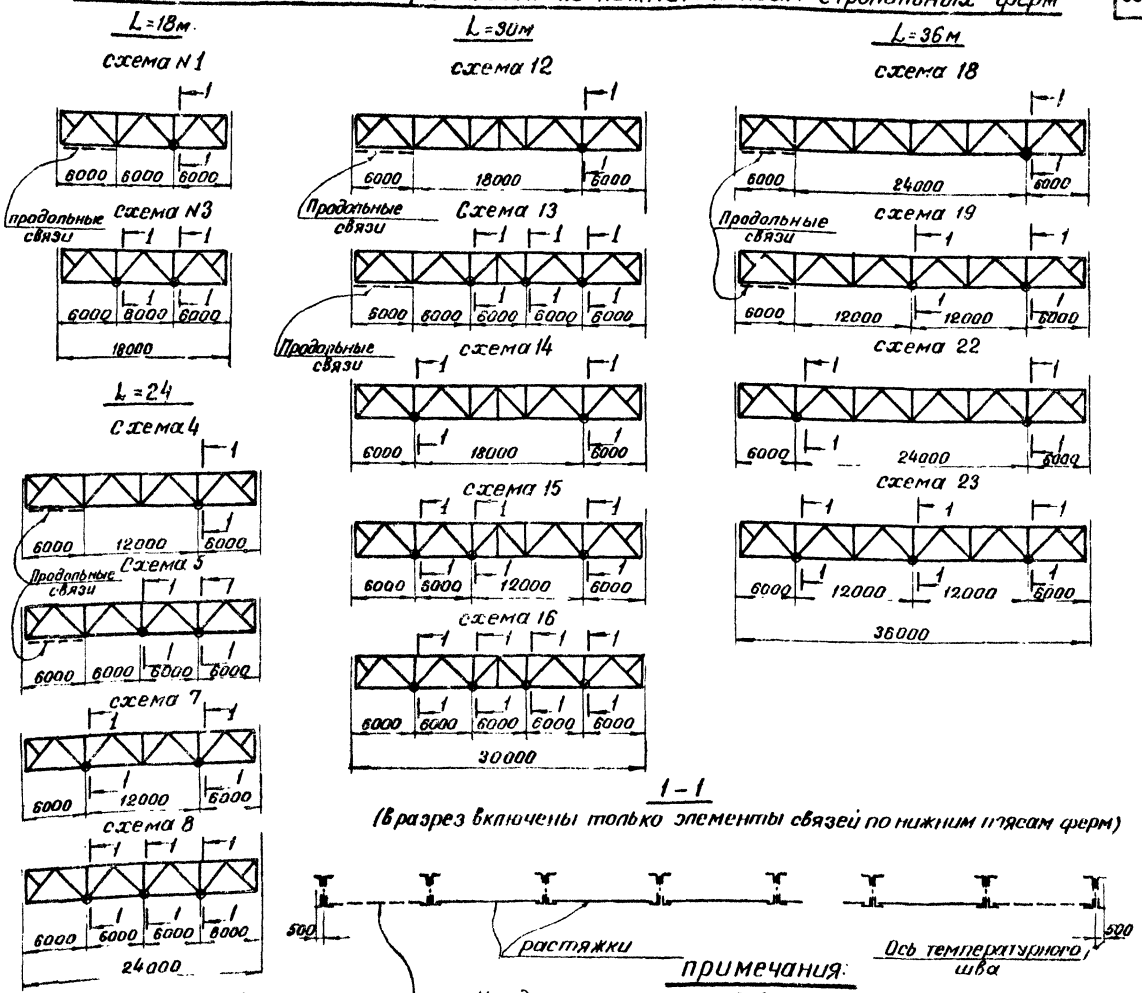 стропильных ферм
L=18м.
схема N1
1
1
6000 6000 6000
продольные
связи
схема N3
1 1
1 1
6000 6000 6000
18000
L=24
схема 4
1
1
6000 12000 6000
Продольные
связи
схема 5
1 1
1 1
6000 6000 6000 6000
схема 7
1 1
1 1
6000 12000 6000
схема 8
1 1 1
1 1 1
6000 6000 6000 6000
24000
L=30м
схема 12
1
1
6000 18000 6000
Продольные
связи
Схема 13
1 1 1
1 1 1
6000 6000 6000 6000 6000
Продольные
связи
схема 14
1 1
1 1
6000 18000 6000
схема 15
1 1 1
1 1 1
6000 6000 12000 6000
схема 16
1 1 1 1
1 1 1 1
6000 6000 6000 6000 6000
30000
L=36м
схема 18
1
1
6000 24000 6000
Продольные
связи
схема 19
1 1
1 1
6000 12000 12000 6000
схема 22
1 1
1 1
6000 24000 6000
схема 23
1 1 1
1 1 1
6000 12000 12000 6000
36000
1-1
(В разрез включены только элементы связей по нижним поясам ферм)
500
растяжки
Ось температурного
шва
500
примечания: